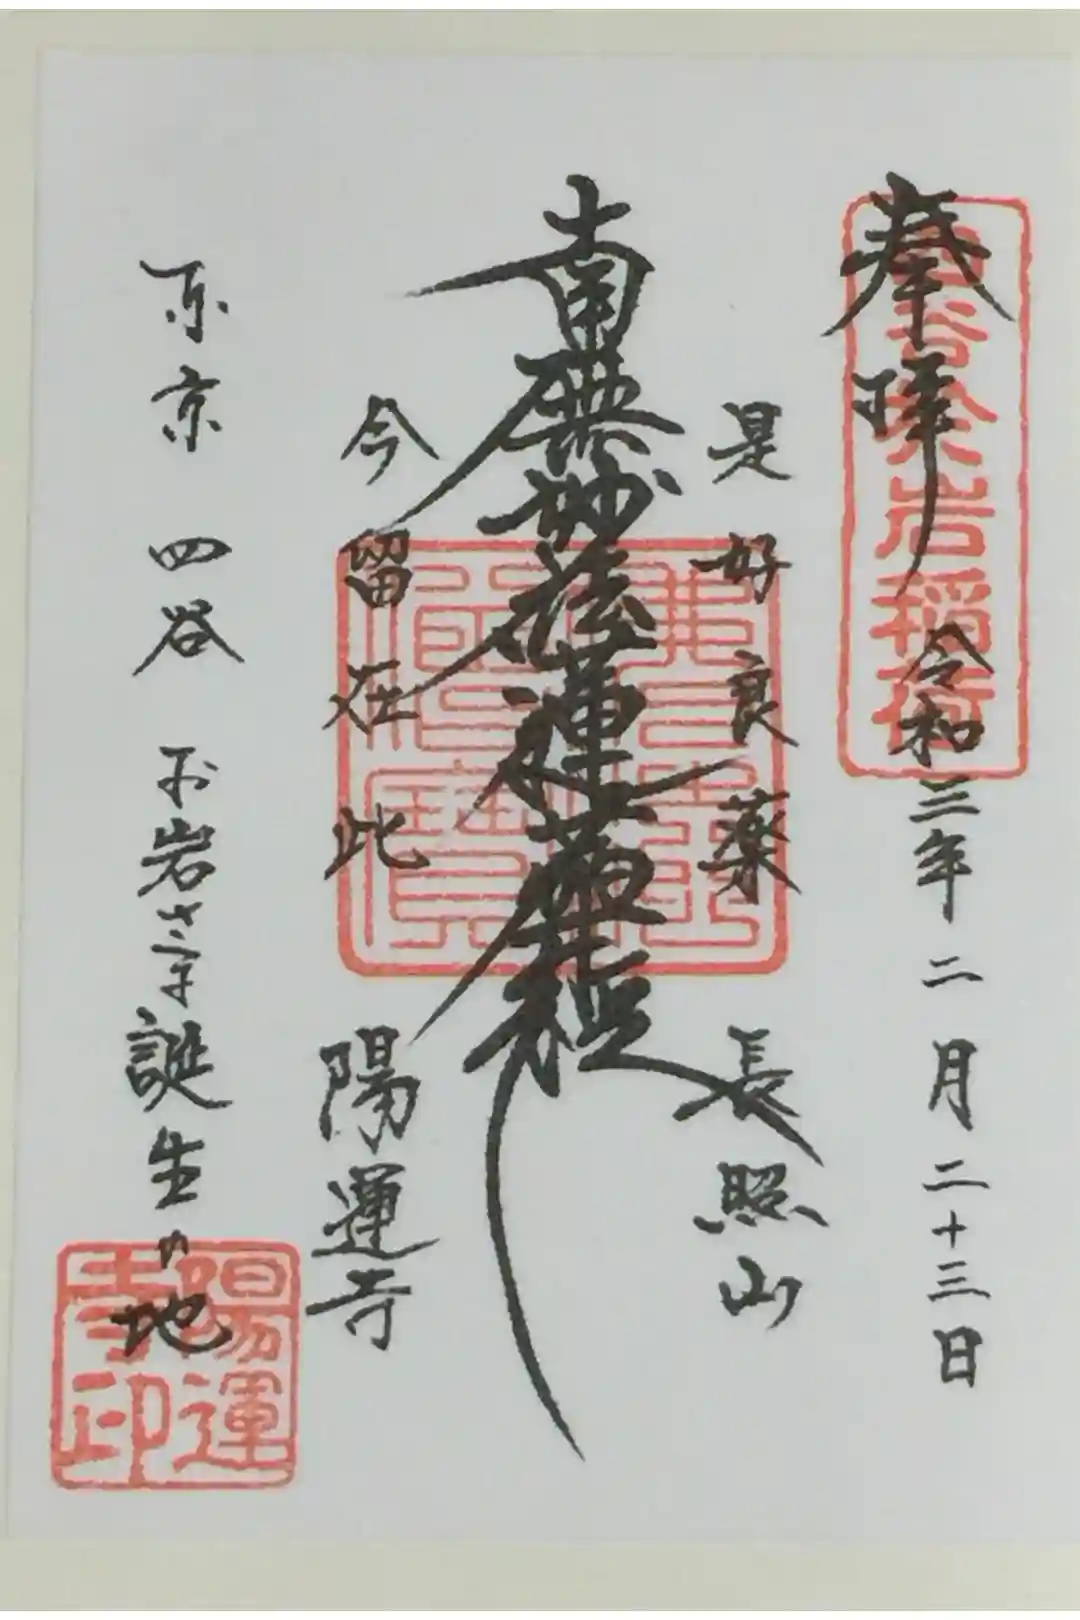 奉拝 令和三年二月二十三日
四谷於岩稲荷
是好良薬
長照山
南無妙法蓮華経
今留在此
陽運寺
東京 四谷 お岩さま誕生の地
陽運寺印